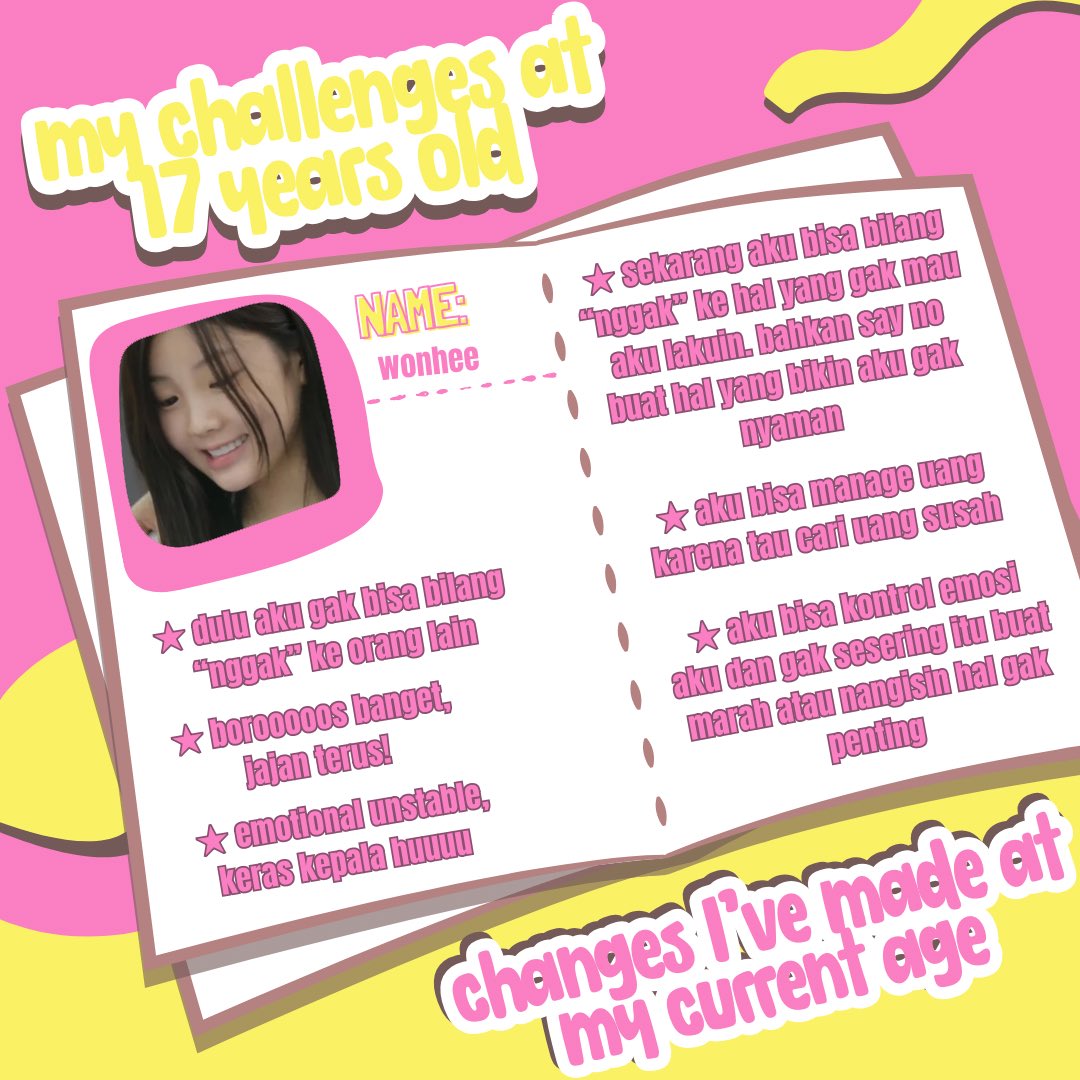 my challenges at
17 years old
NAME:
wonhee
★ dulu aku gak bisa bilang
“nggak” ke orang lain
★ borooooos banget,
jajan terus!
★ emotional unstable,
keras kepala huuuu
★ sekarang aku bisa bilang
“nggak” ke hal yang gak mau
aku lakuin. bahkan say no
buat hal yang bikin aku gak
nyaman
★ aku bisa manage uang
karena tau cari uang susah
★ aku bisa kontrol emosi
aku dan gak sesering itu buat
marah atau nangisin hal gak
penting
changes I’ve made at
my current age